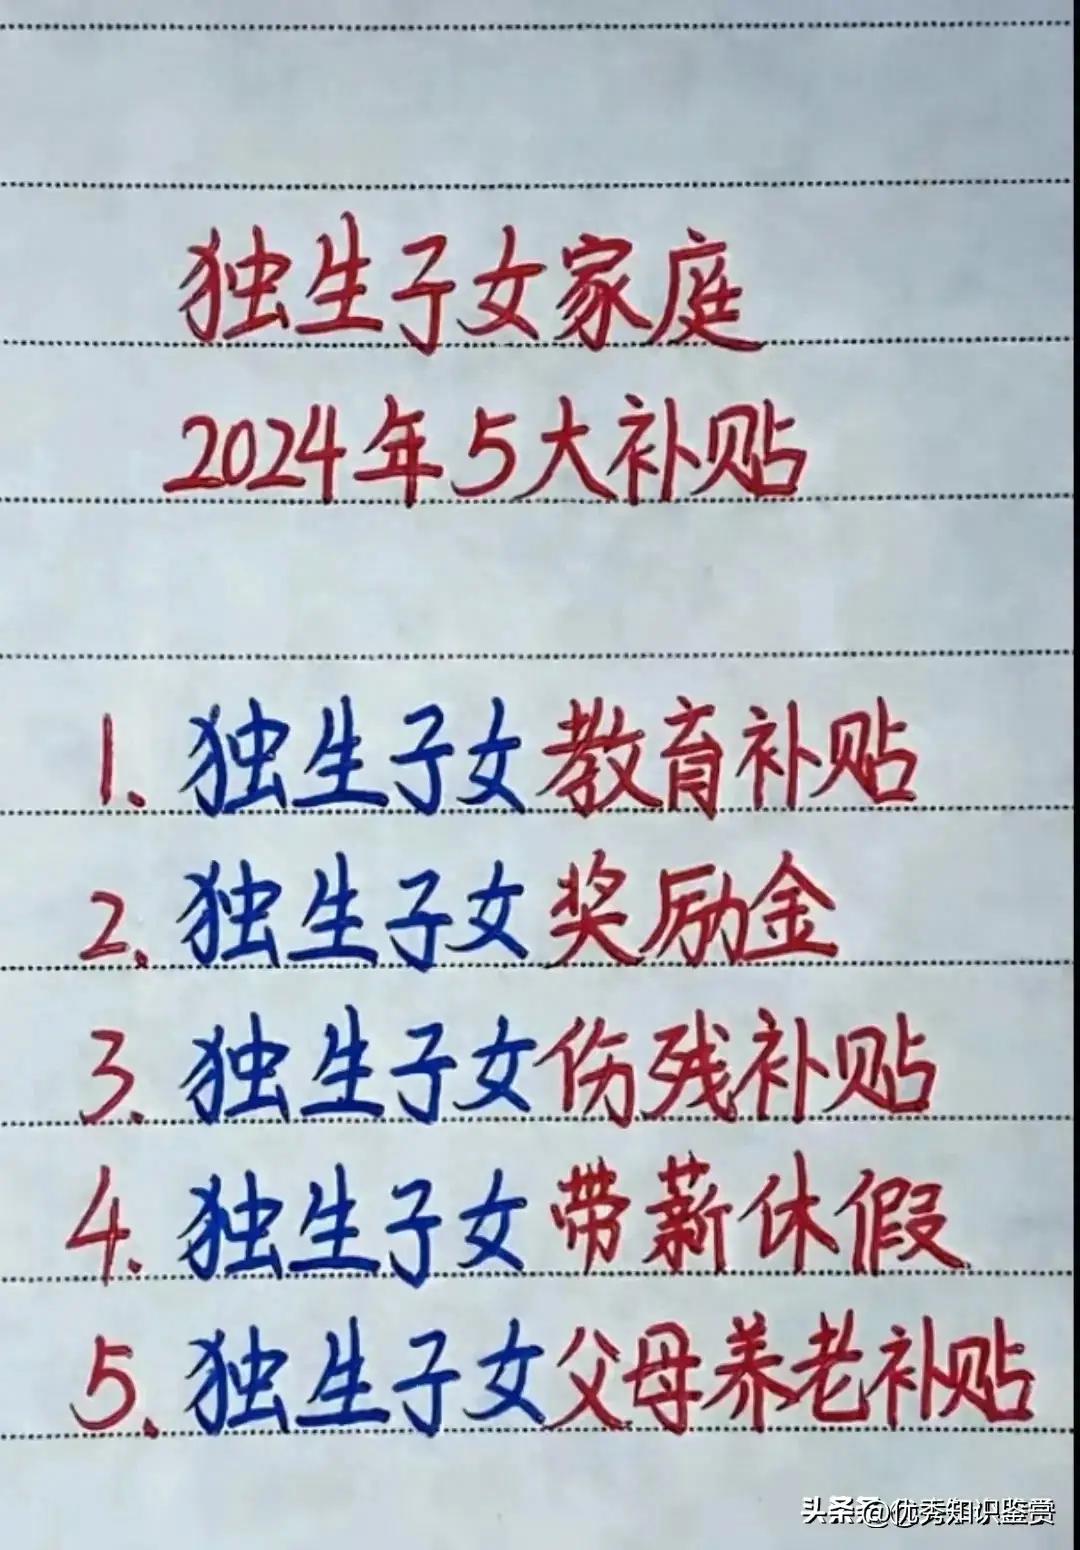 独生子女家庭
2024年5大补贴
1. 独生子女教育补贴
2. 独生子女奖励金
3. 独生子女伤残补贴
4. 独生子女带薪休假
5. 独生子女父母养老补贴
头条 @优秀知识鉴赏